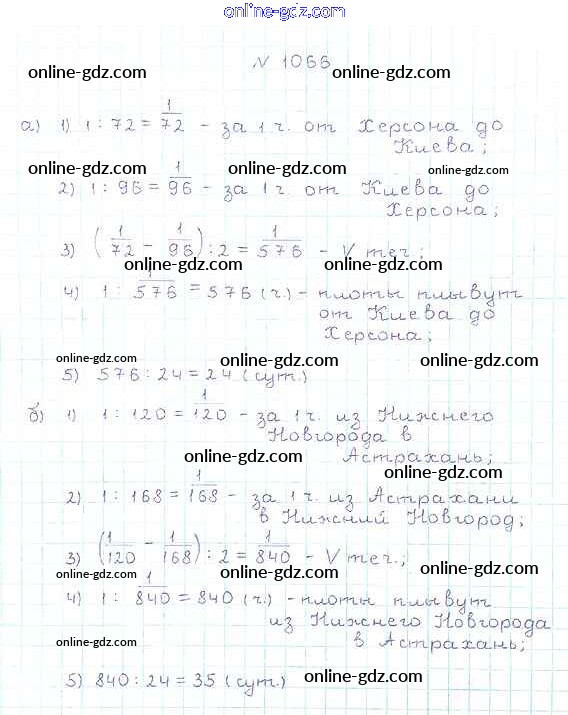 online-gdz.com
№ 1066
online-gdz.com online-gdz.com online-gdz.com
а) 1) 1 : 72 = 1/72 - за 1 ч. от Херсона до
Киева;
online-gdz.com online-gdz.com online-gdz.com
2) 1 : 96 = 1/96 - за 1 ч. от Киева до
Херсона;
3) (1/72 - 1/96) : 2 = 1/576 - V теч.;
online-gdz.com online-gdz.com
4) 1 : 1/576 = 576 (ч.) - плоты плывут
от Киева до
Херсона;
online-gdz.com online-gdz.com online-gdz.com
5) 576 : 24 = 24 (сут.)
б) 1) 1 : 120 = 1/120 - за 1 ч. из Нижнего
Новгорода в
Астрахань;
online-gdz.com
2) 1 : 168 = 1/168 - за 1 ч. из Астрахани
в Нижний Новгород;
3) (1/120 - 1/168) : 2 = 1/840 - V теч.;
online-gdz.com online-gdz.com online-gdz.com
4) 1 : 1/840 = 840 (ч.) - плоты плывут
из Нижнего Новгорода
в Астрахань;
online-gdz.com
5) 840 : 24 = 35 (сут.)
online-gdz.com online-gdz.com